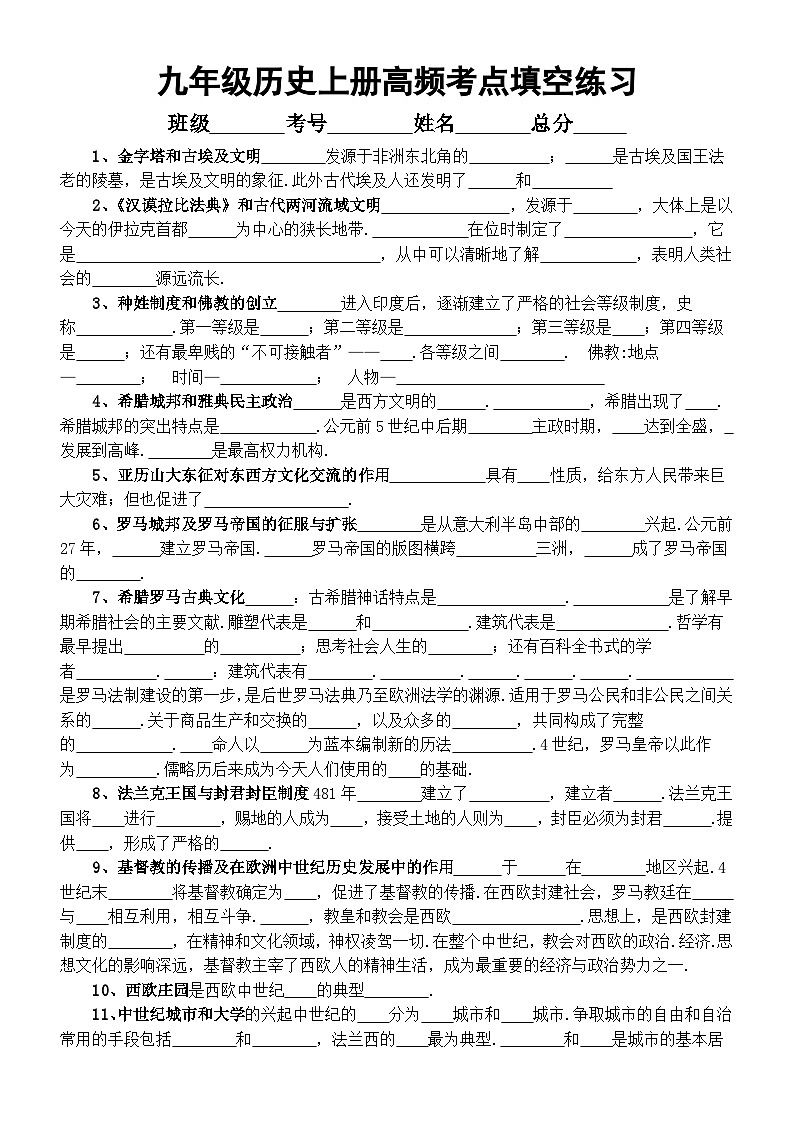 九年级历史上册高频考点填空练习
班级_______考号________姓名_______总分_____
1、金字塔和古埃及文明________发源于非洲东北角的__________；______是古埃及国王法
老的陵墓，是古埃及文明的象征.此外古代埃及人还发明了______和__________
2、《汉谟拉比法典》和古代两河流域文明________________，发源于________，大体上是以
今天的伊拉克首都______为中心的狭长地带.____________在位时制定了________________，它
是______________________________________，从中可以清晰地了解____________，表明人类社
会的________源远流长.
3、种姓制度和佛教的创立________进入印度后，逐渐建立了严格的社会等级制度，史
称____________.第一等级是______；第二等级是______________；第三等级是____；第四等级
是______；还有最卑贱的“不可接触者”——____.各等级之间________. 佛教:地点
—________； 时间—____________； 人物—__________________________
4、希腊城邦和雅典民主政治______是西方文明的______.____________，希腊出现了____.
希腊城邦的突出特点是____________.公元前5世纪中后期________主政时期，____达到全盛，_
发展到高峰.________是最高权力机构.
5、亚历山大东征对东西方文化交流的作用____________具有____性质，给东方人民带来巨
大灾难；但也促进了__________________.
6、罗马城邦及罗马帝国的征服与扩张________是从意大利半岛中部的________兴起.公元前
27年，______建立罗马帝国.______罗马帝国的版图横跨__________三洲，______成了罗马帝国
的________.
7、希腊罗马古典文化______：古希腊神话特点是________________.____________是了解早
期希腊社会的主要文献.雕塑代表是______和____________.建筑代表是______________.哲学有
最早提出__________的__________；思考社会人生的________；还有百科全书式的学
者__________.______：建筑代表有________.__________.______.______.______.____________
是罗马法制建设的第一步,是后世罗马法典乃至欧洲法学的渊源.适用于罗马公民和非公民之间关
系的______.关于商品生产和交换的______，以及众多的________，共同构成了完整
的____________.____命人以______为蓝本编制新的历法__________.4世纪，罗马皇帝以此作
为__________.儒略历后来成为今天人们使用的____的基础.
8、法兰克王国与封君封臣制度481年________建立了__________，建立者______.法兰克王
国将____进行________，赐地的人成为____，接受土地的人则为____，封臣必须为封君______.提
供____，形成了严格的______.
9、基督教的传播及在欧洲中世纪历史发展中的作用______于______在________地区兴起.4
世纪末________将基督教确定为____，促进了基督教的传播.在西欧封建社会，罗马教廷在_____
与____相互利用，相互斗争.______，教皇和教会是西欧________________.思想上，是西欧封建
制度的________，在精神和文化领域，神权凌驾一切.在整个中世纪，教会对西欧的政治.经济.思
想文化的影响深远，基督教主宰了西欧人的精神生活，成为最重要的经济与政治势力之一.
10、西欧庄园是西欧中世纪____的典型________.
11、中世纪城市和大学的兴起中世纪的____分为____城市和____城市.争取城市的自由和自治
常用的手段包括________和________，法兰西的____最为典型.________和____是城市的基本居